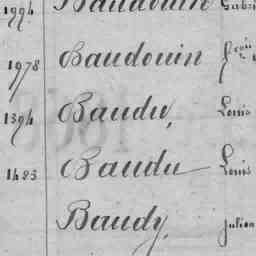 1994 Baudouin Gabri
1978 Baudouin Frois
1394 Baudu, Louis
1483 Baudu Louis
Baudy, Julien